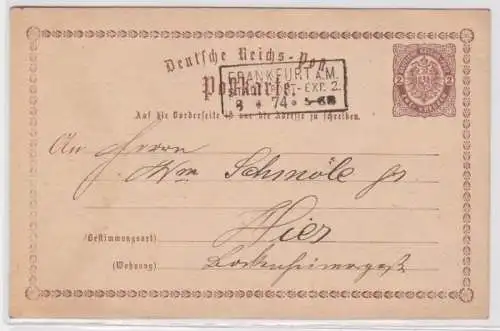 Deutsche Reichs-Post
Postkarte.
FRANKFURT A.M.
-EXP. 2.
8 4 74
2 2
Auf die Vorderseite ist nur die Adresse zu schreiben.
An Herrn
Wm Schmöle
Hier
(Bestimmungsort)
(Wohnung)